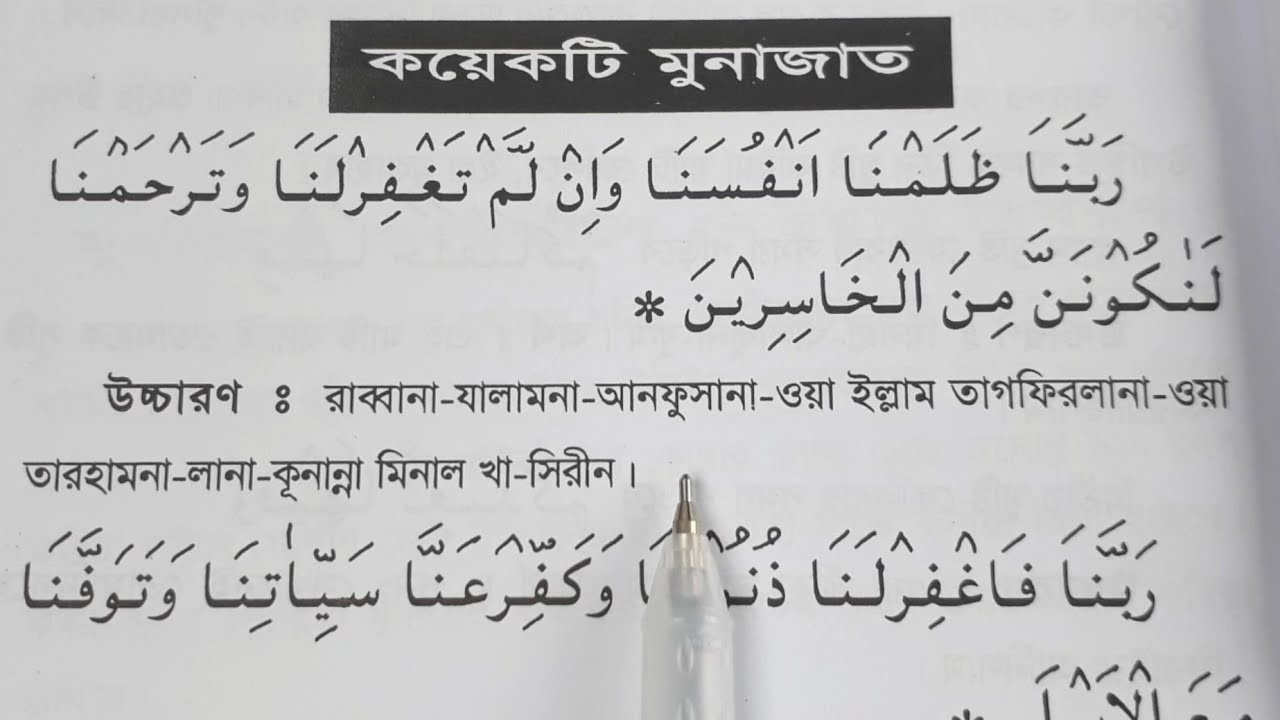 কয়েকটি মুনাজাত
رَبَّنَا ظَلَمْنَا اَنْفُسَنَا وَاِنْ لَّمْ تَغْفِرْلَنَا وَتَرْحَمْنَا
لَنَكُوْنَنَّ مِنَ الْخَاسِرِيْنَ *
উচ্চারণ ঃ রাব্বানা-যালামনা-আনফুসানা-ওয়া ইল্লাম তাগফিরলানা-ওয়া
তারহামনা-লানা-কূনান্না মিনাল খা-সিরীন।
رَبَّنَا فَاغْفِرْلَنَا وَكَفِّرْعَنَّا سَيِّاٰتِنَا وَتَوَفَّنَا